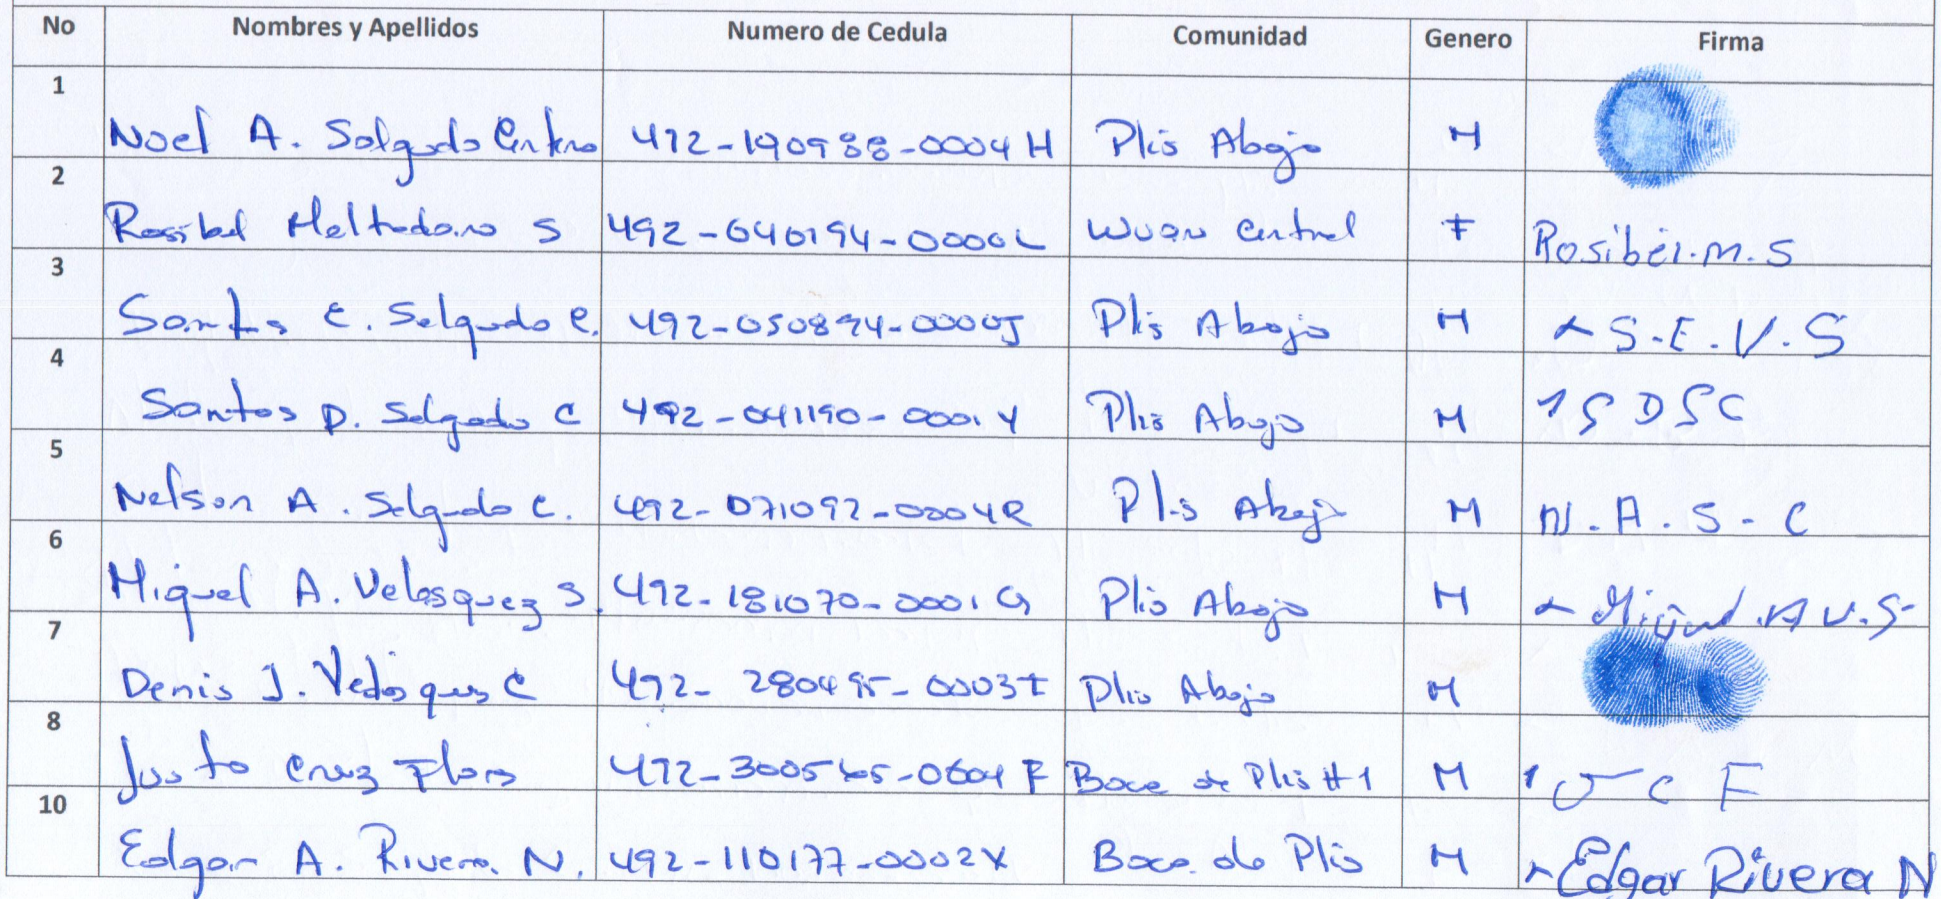 No Nombres y Apellidos Numero de Cedula Comunidad Genero Firma
1 Noel A. Salgado Centeno 492-190988-0004H Plis Abajo M
2 Rosibel Maltodano S 492-040194-0000L Wuan Central F Rosibel.M.S
3 Santos E. Salgado C. 492-050894-0000J Plis Abajo M S.E.V.S
4 Santos D. Salgado C 492-041190-0001Y Plis Abajo M S D S C
5 Nelson A. Salgado C. 492-071092-0004R Plis Abajo M N.A.S-C
6 Miguel A. Velasquez S. 492-181070-0001G Plis Abajo M Miguel.A V.S-
7 Denis J. Velasques C 492- 280495-0003 Plis Abajo M
8 Justo Cruz Flores Boca de Plis #1 M J C F
10 Edgar A. Rivera N. 492-110177-0002X Boca de Plis M Edgar Rivera N